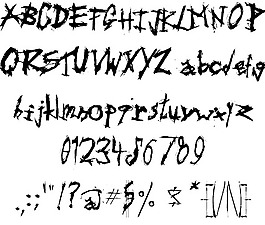 ABCDEFGHIJKLMNOP
QRSTUVWXYZ abcdefg
hijklmnopqrstuvwxyz
0123456789
.,:;'"!?@#$% & *{|/\|}